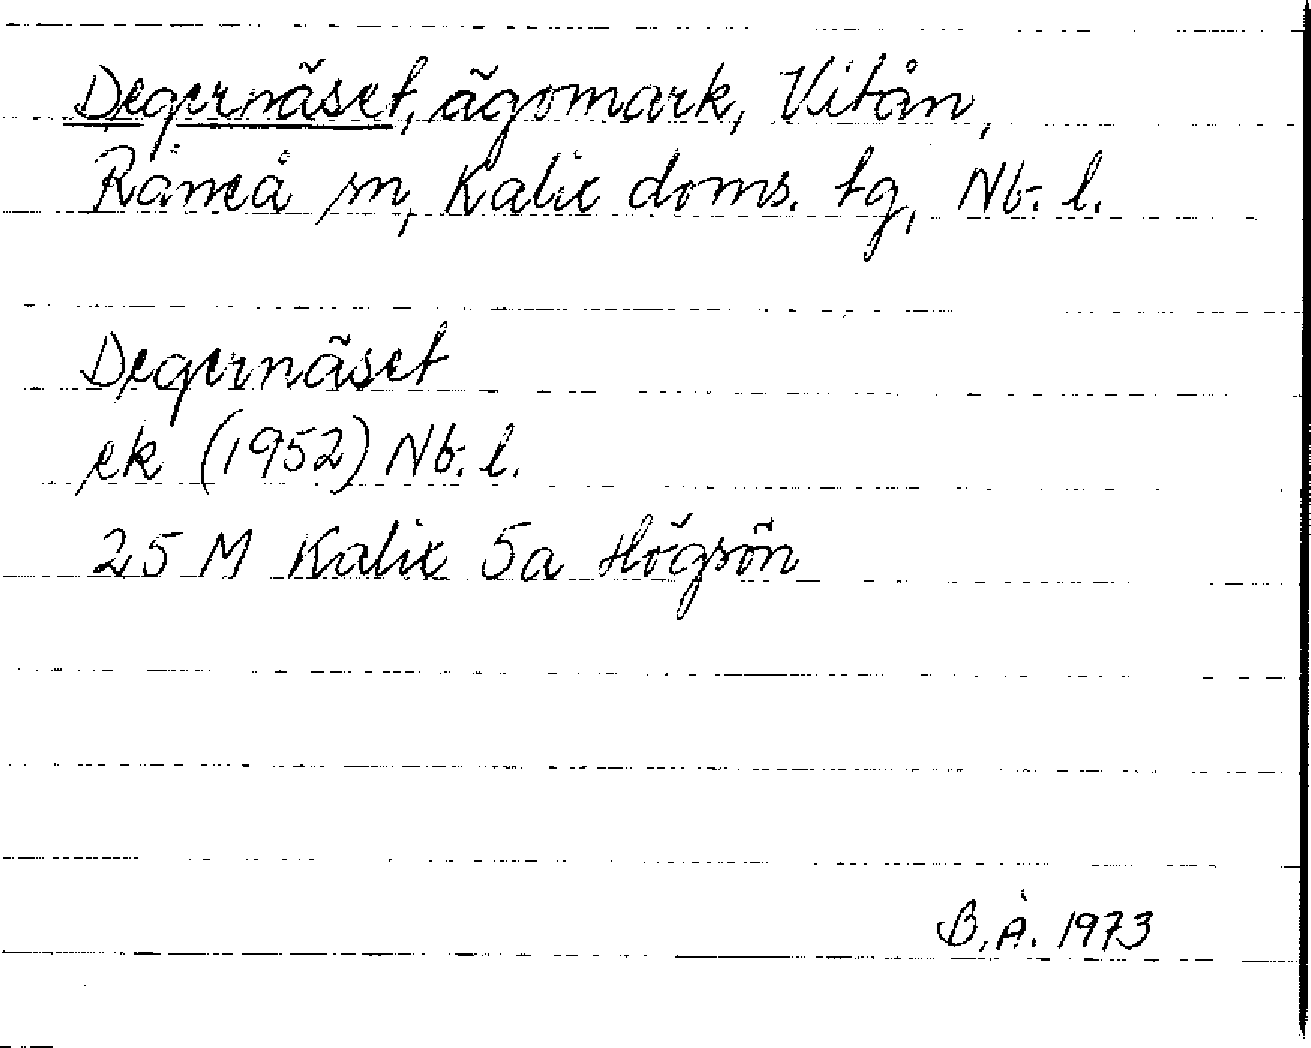 Degernäset, ägomark, Vitån,
Råneå sn, Kalix doms. tg, Nb. l.
Degernäset
ek (1952) Nb. l.
25 M Kalix 5a Högsön
B.Å. 1973